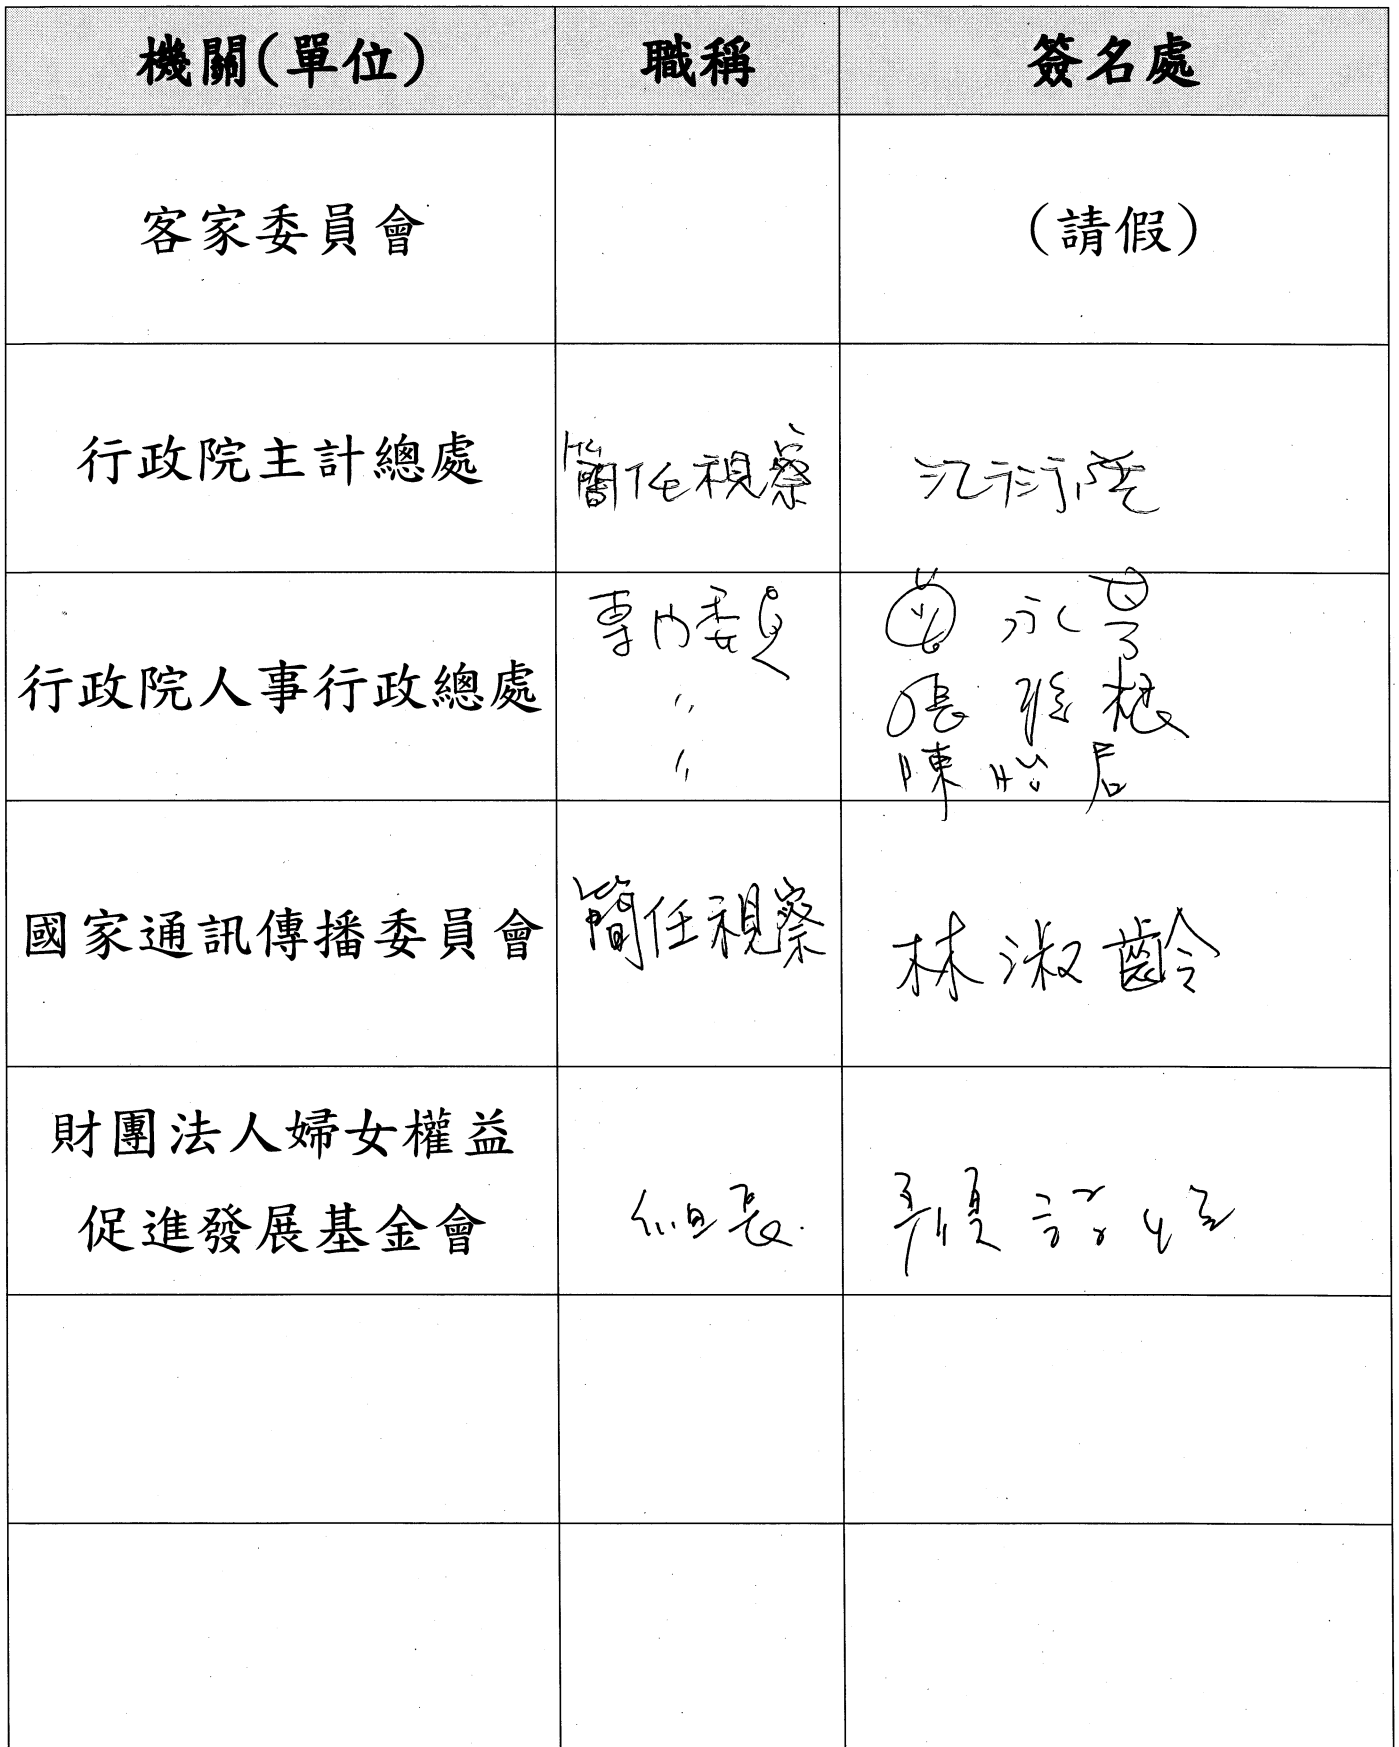 機關(單位) 職稱 簽名處
客家委員會 (請假)
行政院主計總處 簡任視察
專門委員
行政院人事行政總處 〃 張 根
〃 陳怡君
國家通訊傳播委員會 簡任視察 林淑齡
財團法人婦女權益
促進發展基金會 組長 顏